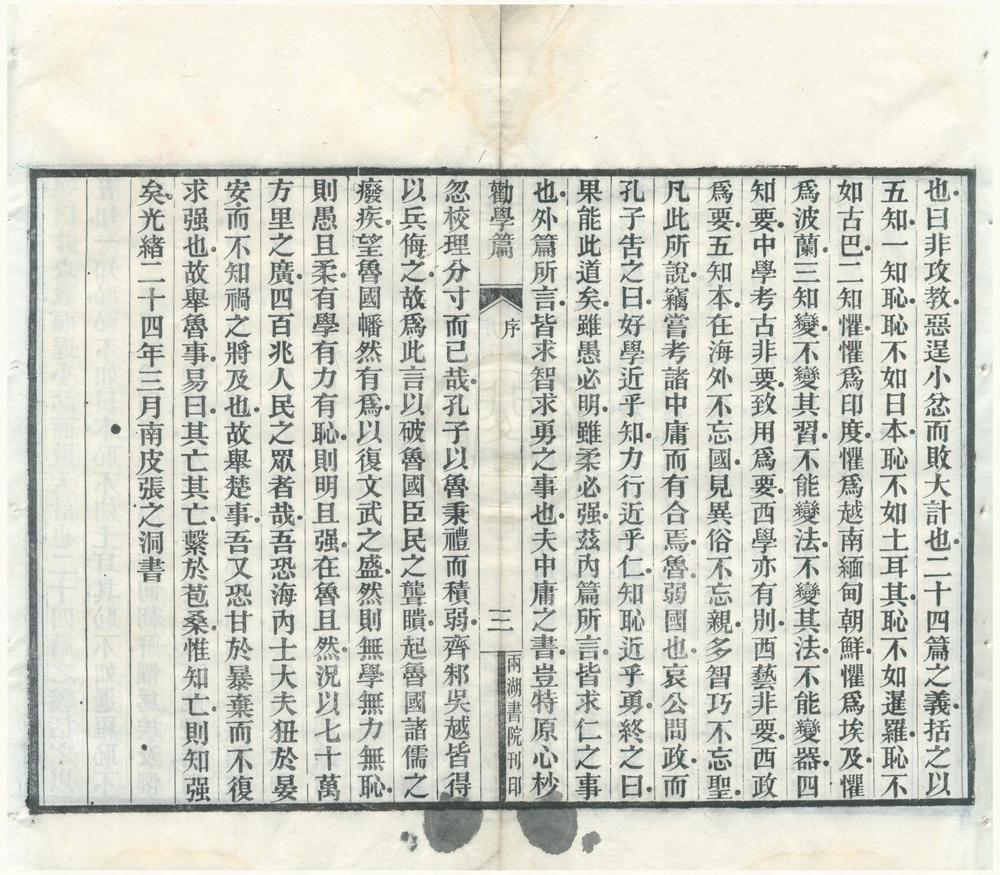 也曰非攻教惡逞小忿而敗大計也二十四篇之義括之以
五知一知恥恥不如日本恥不如土耳其恥不如暹羅恥不
如古巴二知懼懼爲印度懼爲越南緬甸朝鮮懼爲埃及懼
爲波蘭三知變不變其習不能變法不變其法不能變器四
知要中學考古非要致用爲要西學亦有別西藝非要西政
爲要五知本在海外不忘國見異俗不忘親多智巧不忘聖
凡此所說竊嘗考諸中庸而有合焉魯弱國也哀公問政而
孔子告之曰好學近乎知力行近乎仁知恥近乎勇終之曰
果能此道矣雖愚必明雖柔必强茲內篇所言皆求仁之事
也外篇所言皆求智求勇之事也夫中庸之書豈特原心杪
勸學篇 序 三 兩湖書院刊印
忽校理分寸而已哉孔子以魯秉禮而積弱齊邾吳越皆得
以兵侮之故爲此言以破魯國臣民之聾聵起魯國諸儒之
癈疾望魯國幡然有爲以復文武之盛然則無學無力無恥
則愚且柔有學有力有恥則明且强在魯且然況以七十萬
方里之廣四百兆人民之眾者哉吾恐海內士大夫狃於晏
安而不知禍之將及也故舉楚事吾又恐甘於暴棄而不復
求强也故舉魯事易曰其亡其亡繫於苞桑惟知亡則知强
矣光緒二十四年三月南皮張之洞書